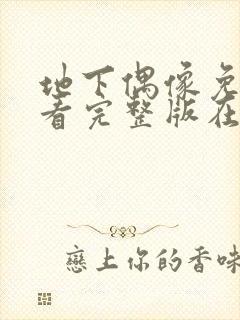 地下偶像免
看完整版在
戀上你的香味